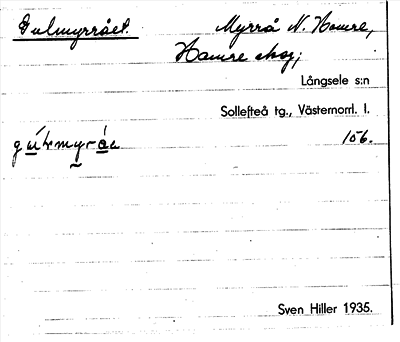 Gulmyrrået. Myrrå N. Hamre,
Hamre skog;
Långsele s:n
Sollefteå tg., Västernorrl. l.
156.
Sven Hiller 1935.